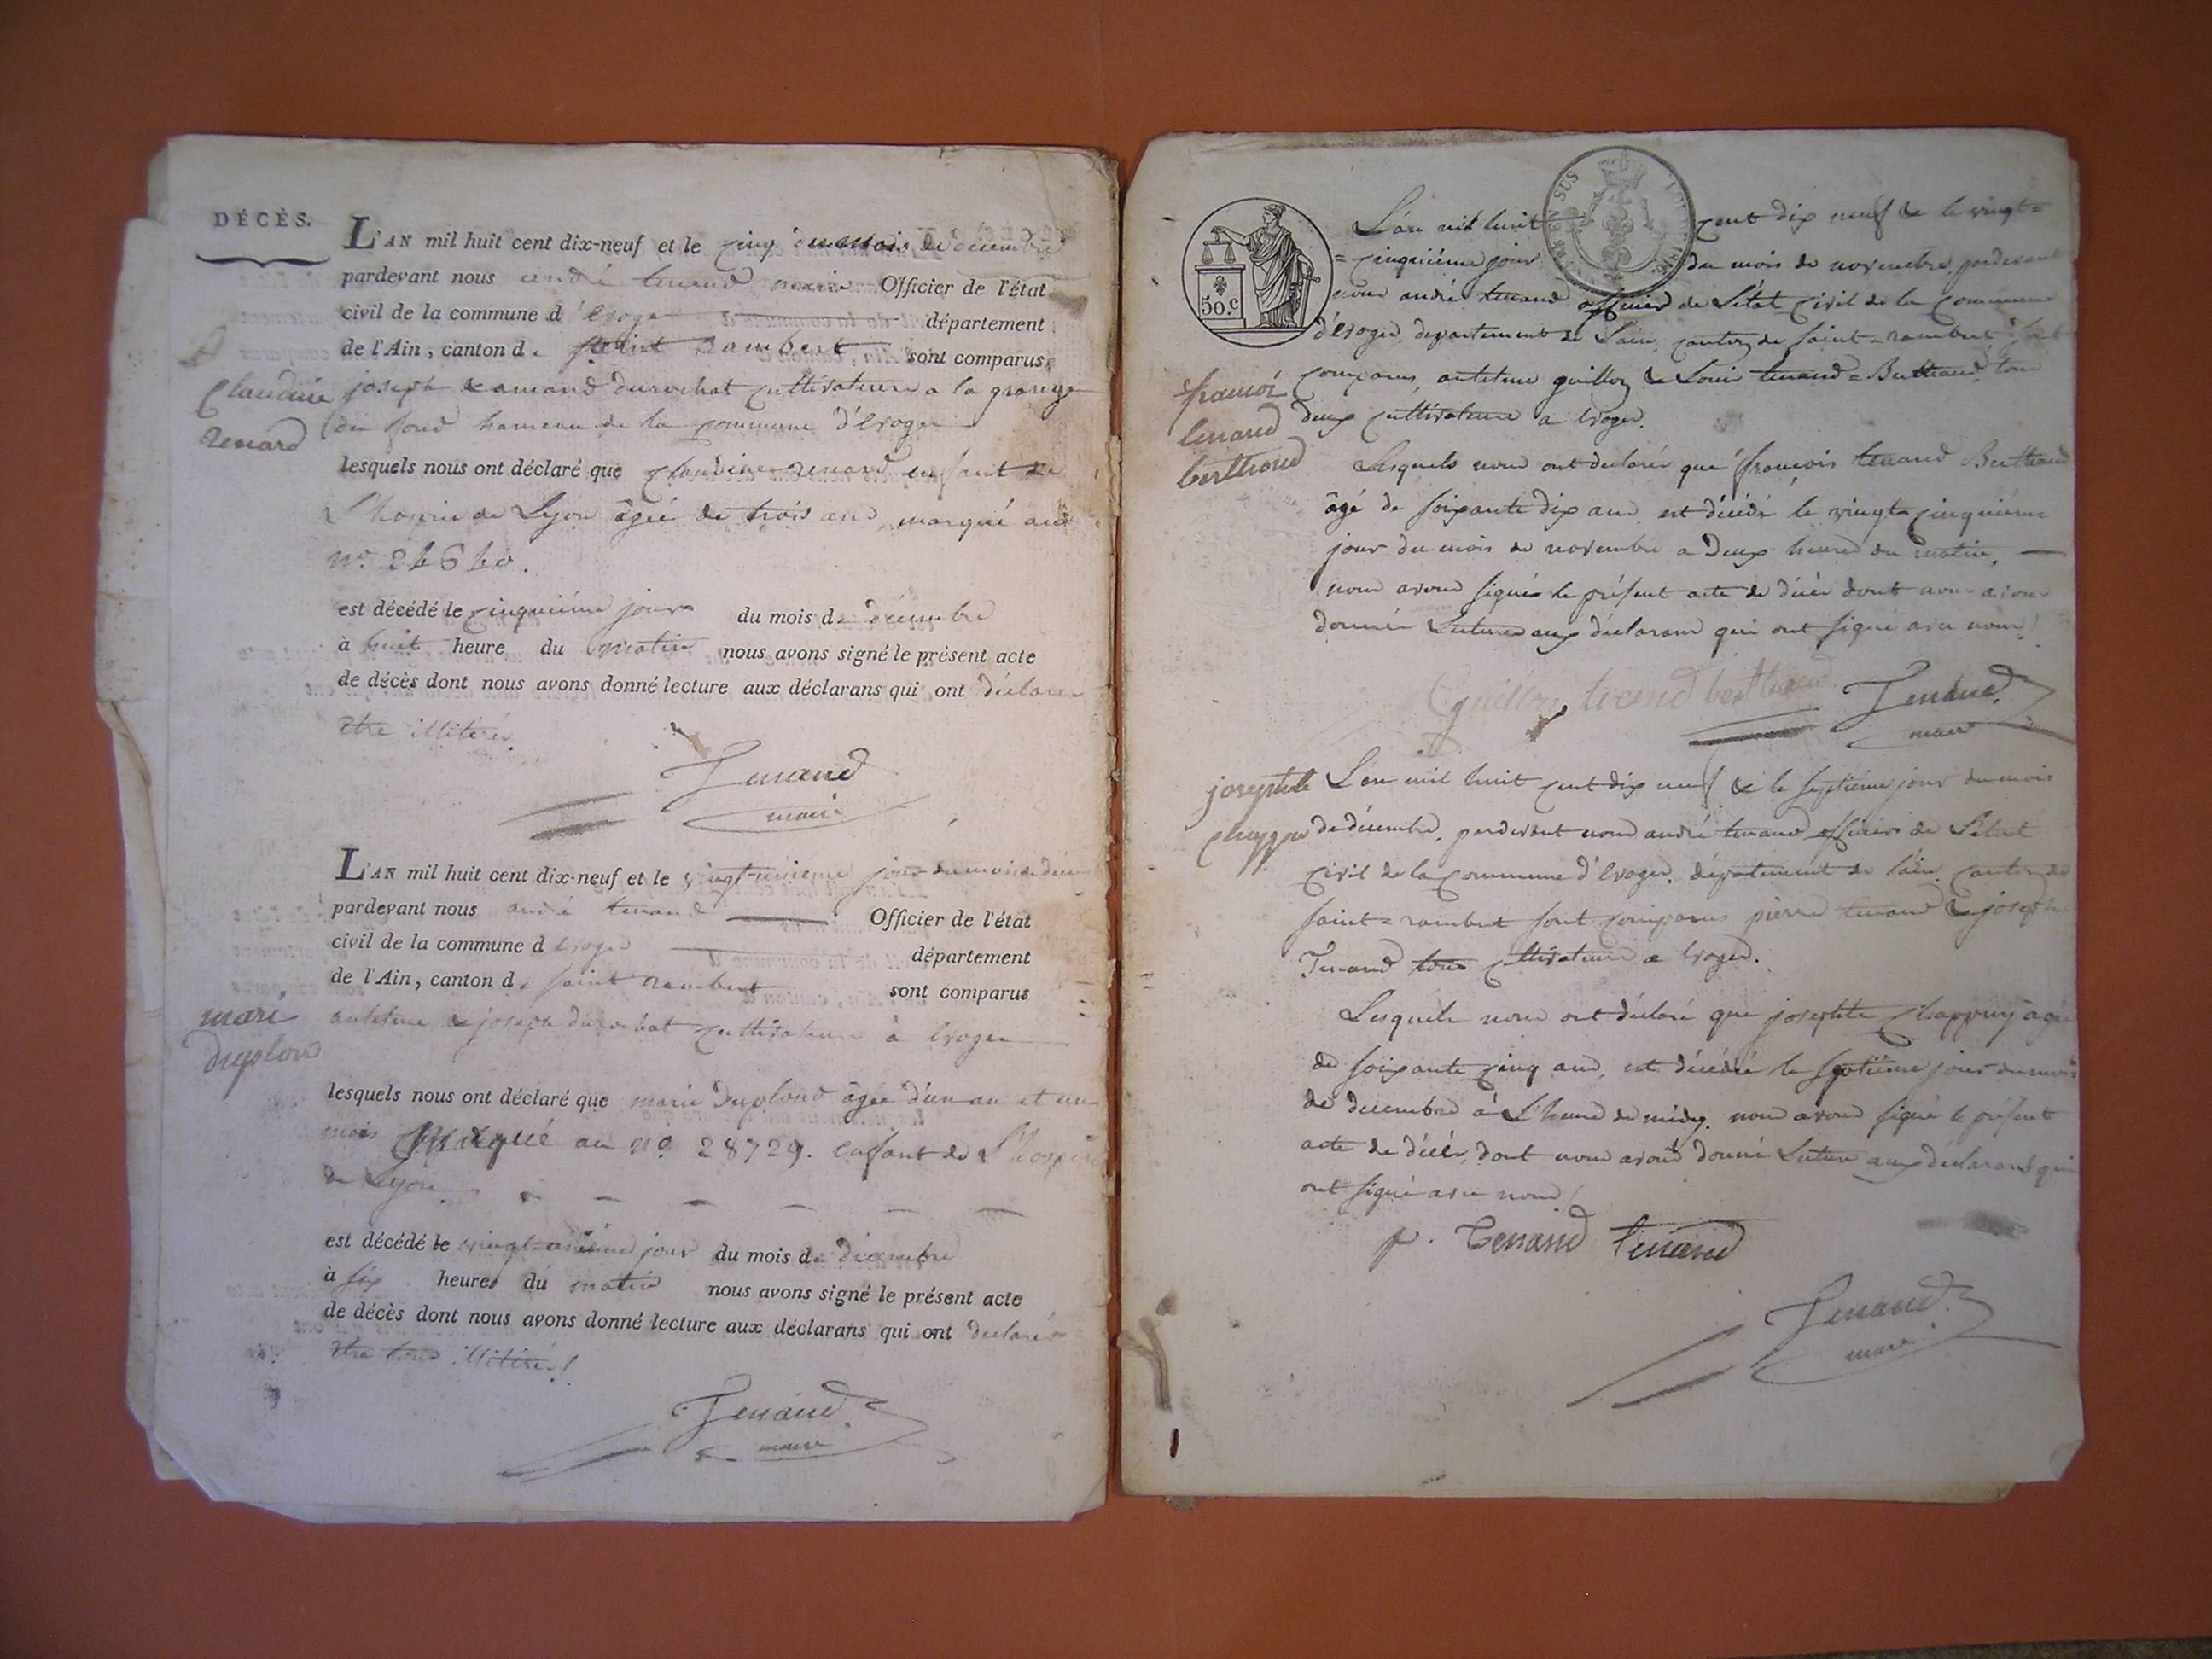 DÉCÈS.
L'AN mil huit cent dix-neuf et le cinq du mois de décembre
pardevant nous andré tenand maire Officier de l'état
civil de la commune d'évoge département
de l'Ain, canton de saint Rambert sont comparus
Claudine
renard
joseph & amand durochat cultivateurs a la grange
du fond hameau de la commune d'évoges
lesquels nous ont déclaré que Claudine renard enfant de
L'hospice de Lyon âgée de trois ans, marqué au
n.º
est décédé le cinquième jour du mois de décembre
à huit heure du matin nous avons signé le présent acte
de décès dont nous avons donné lecture aux déclarans qui ont déclaré
être illitéré.
Tenand
maire
L'AN mil huit cent dix-neuf et le vingt-unieme jour du mois de
pardevant nous andré tenand Officier de l'état
civil de la commune d evoges département
de l'Ain, canton de saint rambert sont comparus
marie
duplond
antelme & joseph durochat cultivateurs à evoges
lesquels nous ont déclaré que marie Duplond âgée d'un an et un
mois Marqué au nº 28729. enfant de L'hospice
de Lyon
est décédé le vingt-unième jour du mois de décembre
à six heures du matin nous avons signé le présent acte
de décès dont nous avons donné lecture aux déclarans qui ont déclaré
être tous illitéré.
Tenand
maire
50.C
L'an mil huit cent dix neuf & le vingt=
=cinquiéme jour du mois de novembre, pardevant
nous andré tenand officier de L'état civil de la commune
d'évoges, departement de L'ain, canton de saint=rambert, sont
comparus, antelme guillon & Louis tenand=Berthand, tous
deux cultivateurs a évoges.
francois
tenand
berthand
Lesquels nous ont declaré que françois tenand Berthand
âgé de soixante dix ans, est décédé le vingt cinquiéme
jour du mois de novembre a Deux heures du matin,
nous avons signé le présent acte de décès dont nous avons
donné Lecture aux déclarans qui ont signé avec nous.
Guillon tenand berthand Tenand
maire
josephte
L'an mil huit cent dix neuf & le septième jour du mois
de décembre, pardevant nous andré tenand officier de L'état
civil de la commune d'évoges, département de l'ain, canton de
saint=rambert sont comparus pierre tenand & joseph
Tenand tous cultivateurs a évoges.
Lesquels nous ont déclaré que josephte Chappuy âgée
de soixante cinq ans, est décédé le septième jour du mois
de decembre à L'heure de midy. nous avons signé le présent
acte de décès, dont nous avons donné Lecture aux déclarans qui
ont signé avec nous.
p. Tenand tenand
Tenand
maire